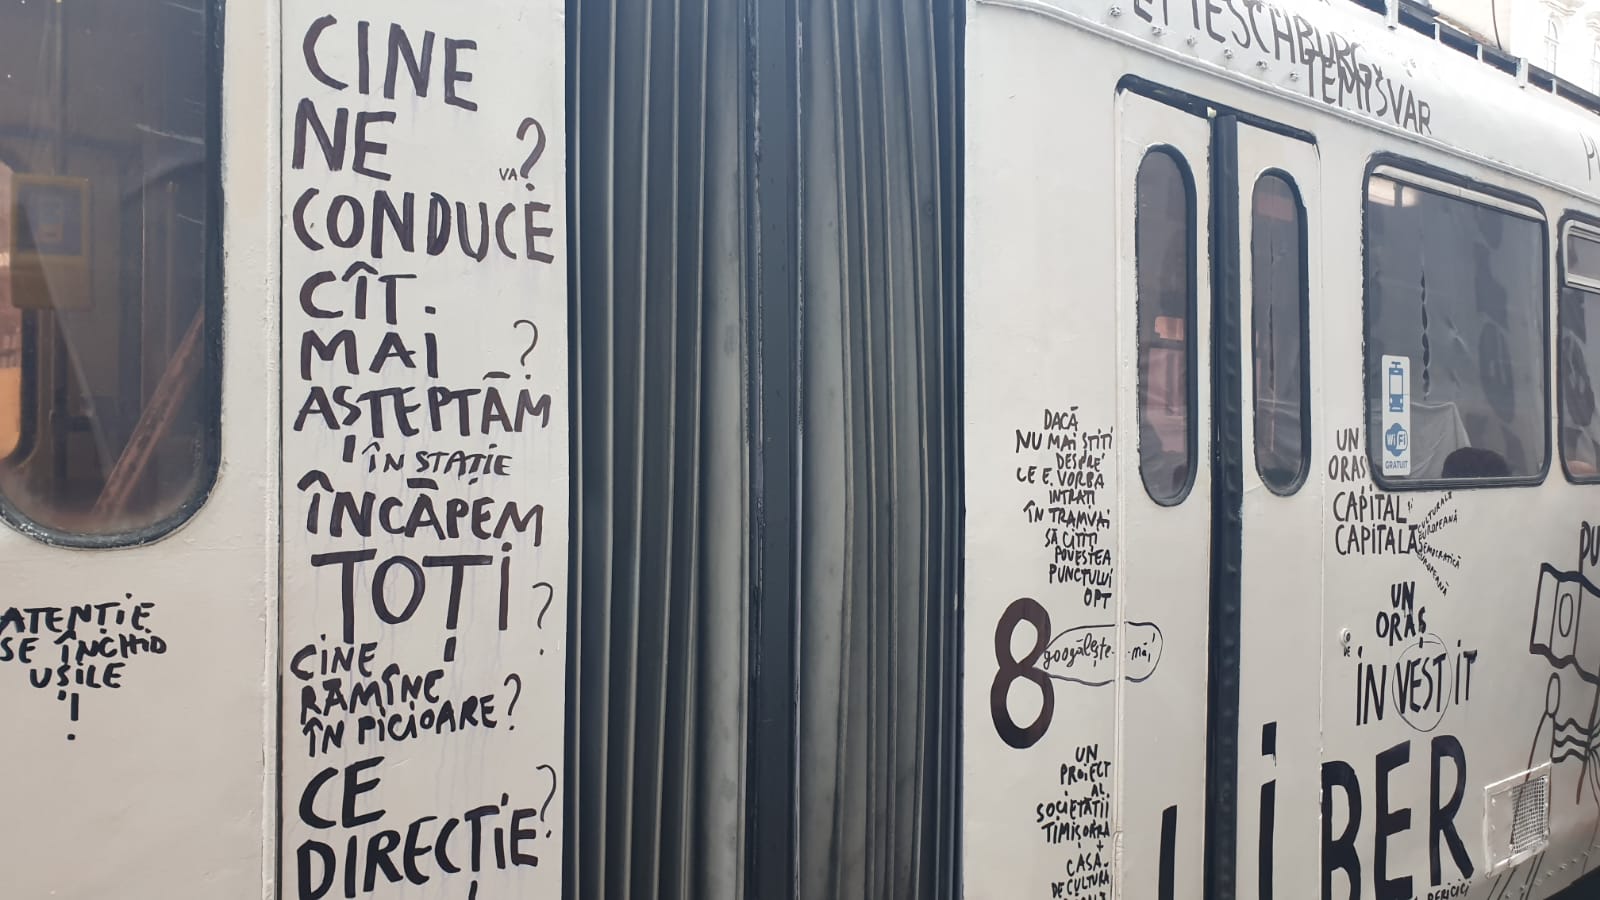 ATENȚIE
SE ÎNCHID
UȘILE
!
CINE
NE
VA?
CONDUCE
CÎT
MAI ?
AȘTEPTĂM
ÎN STAȚIE
ÎNCĂPEM
TOȚI ?
CINE
RĂMÎNE
ÎN PICIOARE?
CE
DIRECȚIE?
DACĂ
NU MAI ȘTIȚI
DESPRE
CE E VORBA
INTRAȚI
ÎN TRAMVAI
SĂ CITIȚI
POVESTEA
PUNCTULUI
OPT
8
googălește-mă!
UN
PROIECT
AL
SOCIETĂȚII
TIMIȘOARA
+
CASA
DE CULTURĂ
TEMISVAR
WiFi
GRATUIT
UN
ORAȘ
CAPITAL
CAPITALĂ
ȘI
CULTURALĂ
EUROPEANĂ
DEMOCRATICĂ
EUROPEANĂ
UN
ORAȘ
ÎN VEST IT
LIBER
PU